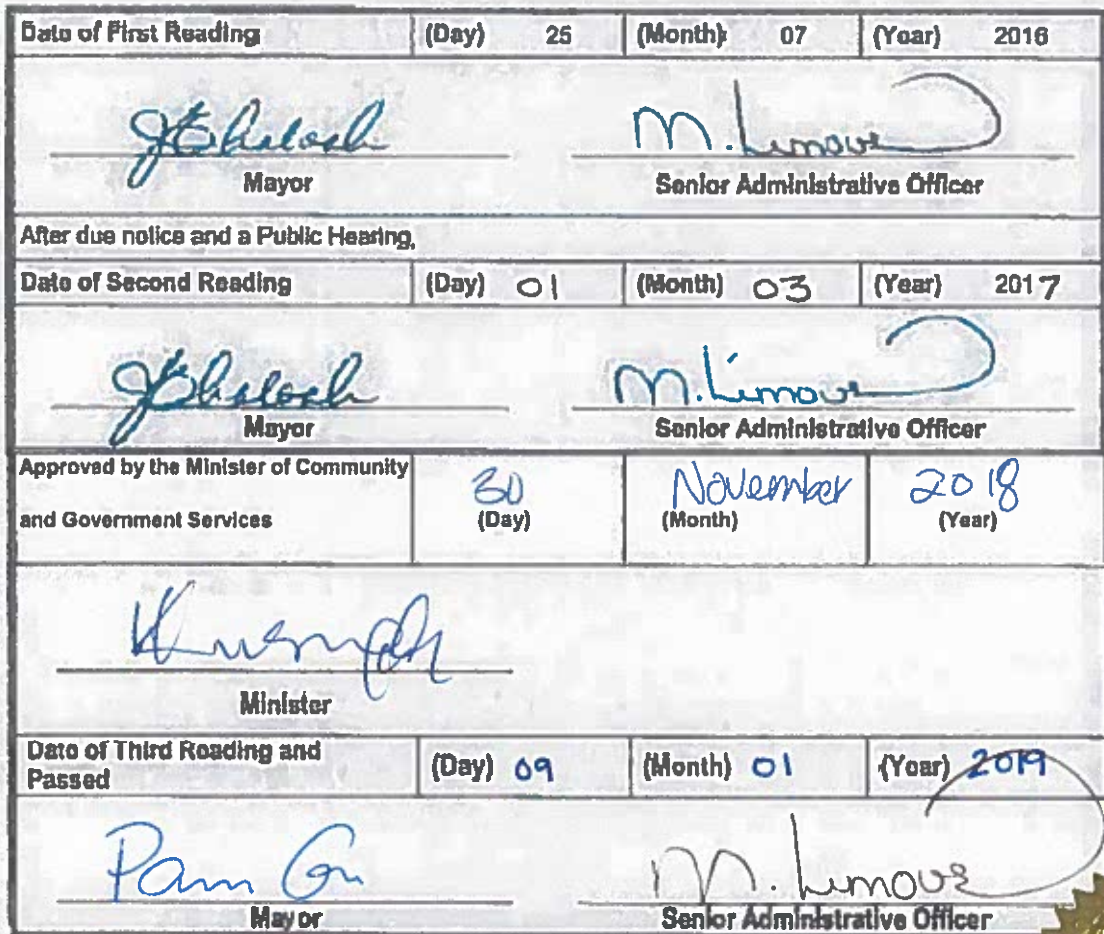 Date of First Reading (Day) 25 (Month) 07 (Year) 2016
M. Limoue
Mayor Senior Administrative Officer
After due notice and a Public Hearing,
Date of Second Reading (Day) 01 (Month) 03 (Year) 2017
M. Limou
Mayor Senior Administrative Officer
Approved by the Minister of Community 30 November 2018
and Government Services (Day) (Month) (Year)
Minister
Date of Third Reading and
Passed (Day) 09 (Month) 01 (Year) 2019
Pam M. Limou
Mayor Senior Administrative Officer